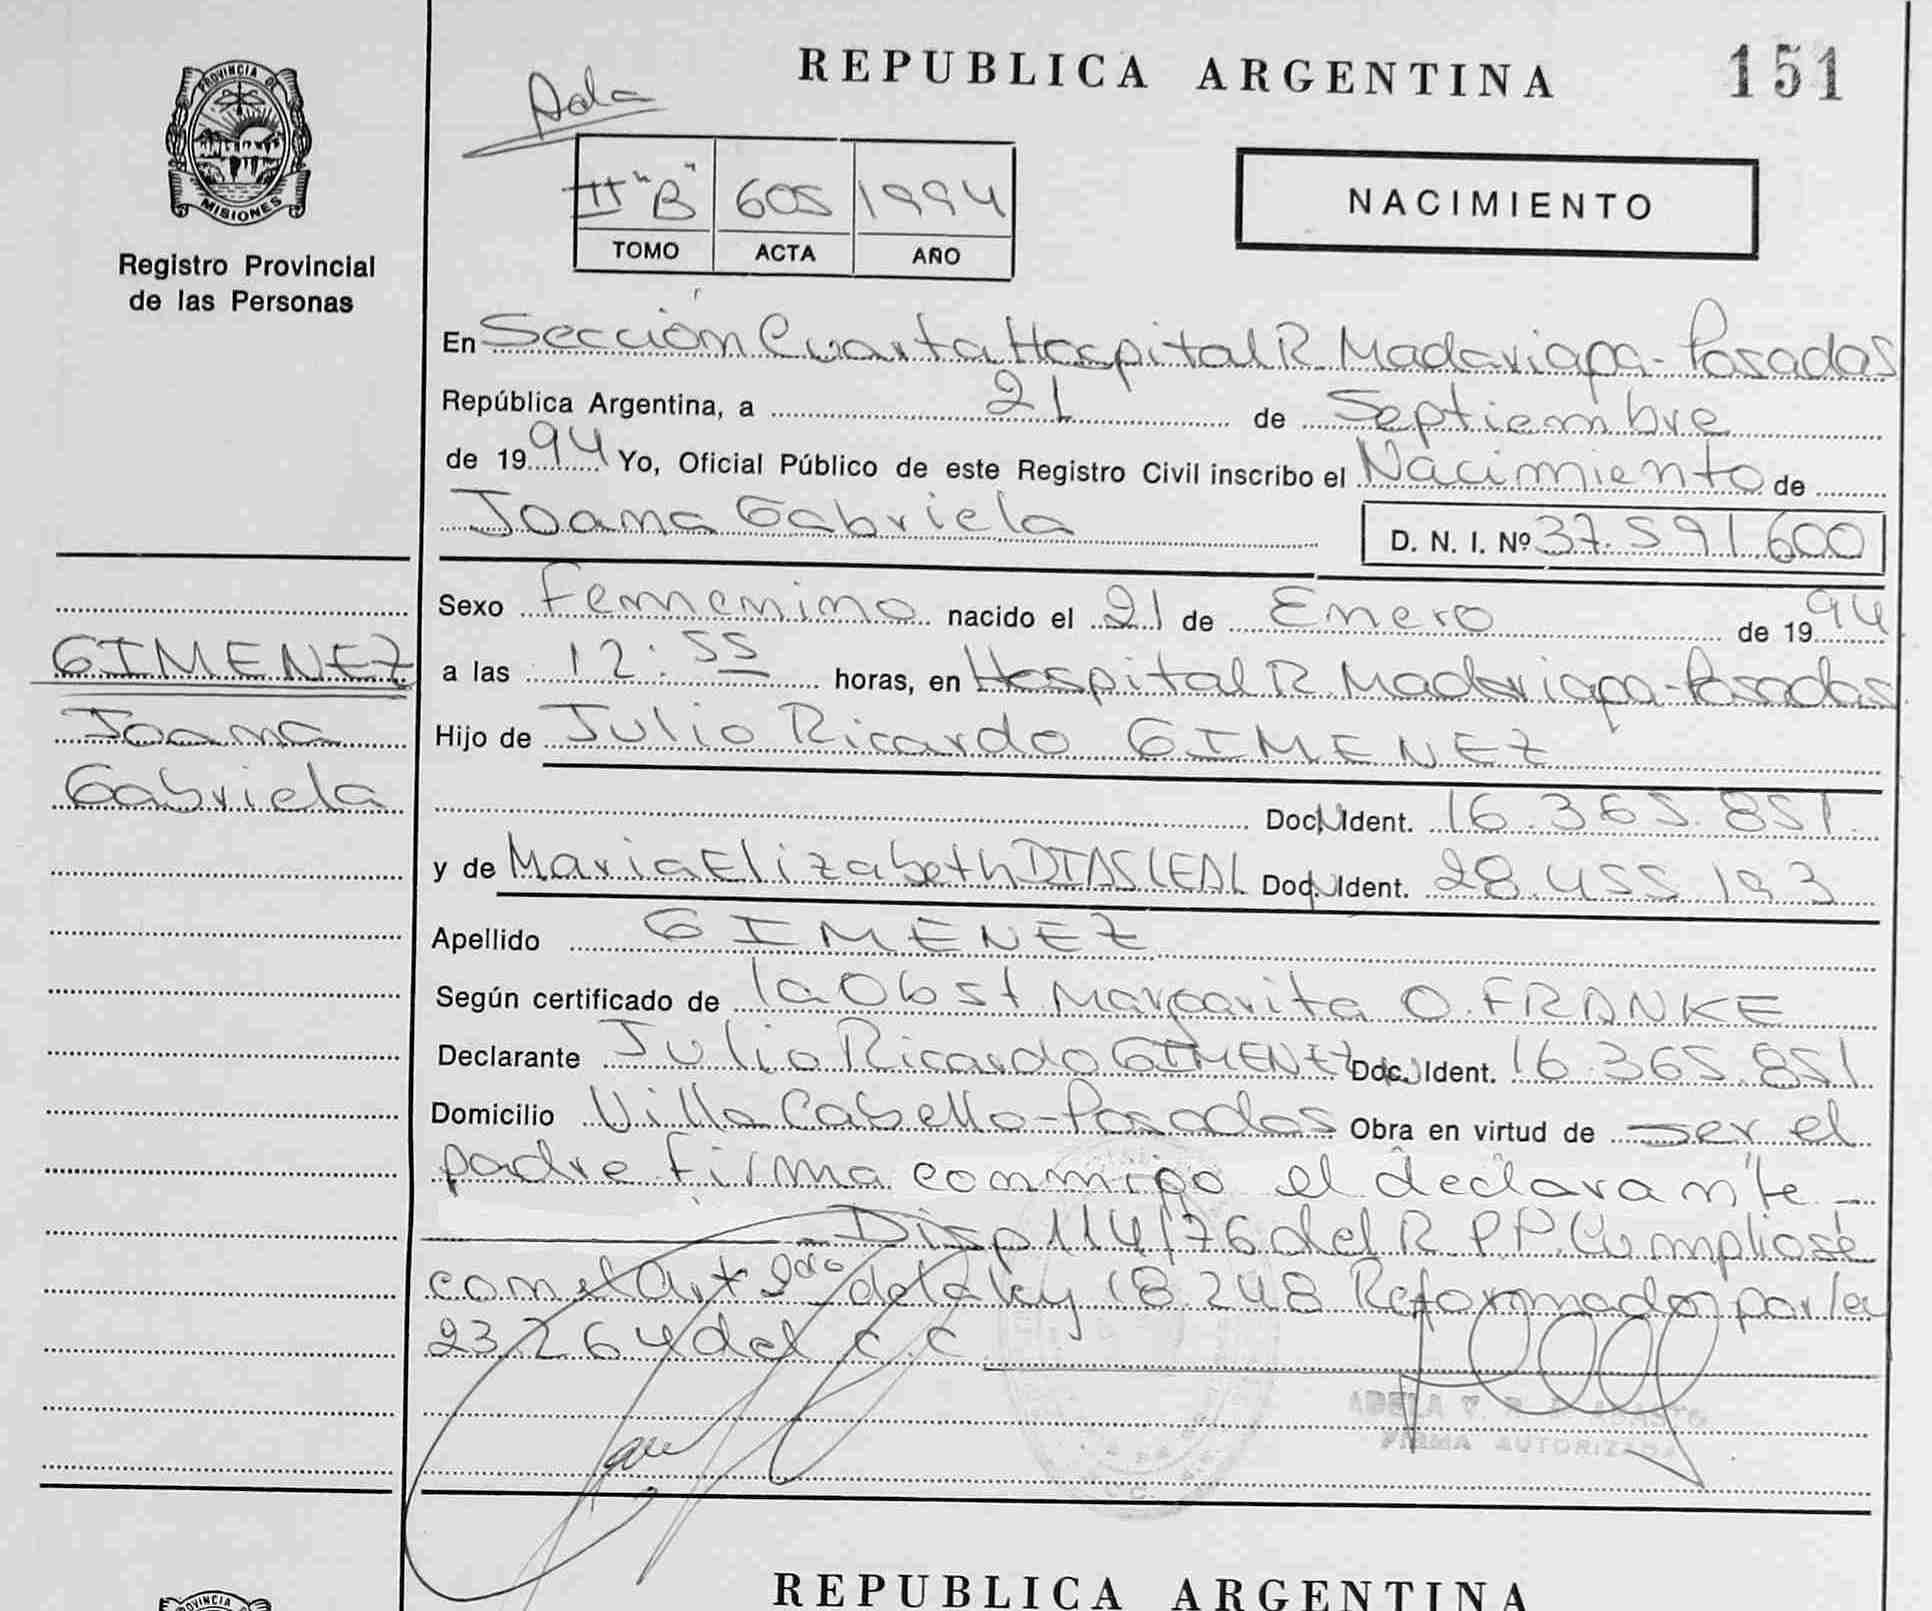 REPUBLICA ARGENTINA
151
PROVINCIA DE
MISIONES
Registro Provincial
de las Personas
II "B" 605 1994
TOMO ACTA AÑO
NACIMIENTO
En Sección Cuarta Hospital R. Madariaga - Posadas
República Argentina, a 21 de Septiembre
de 1994 Yo, Oficial Público de este Registro Civil inscribo el Nacimiento de
Joana Gabriela
D. N. I. Nº 37.591.600
Sexo Femenino nacido el 21 de Enero de 1994
GIMENEZ
Joana
Gabriela
a las 12:55 horas, en Hospital R. Madariaga - Posadas
Hijo de Julio Ricardo GIMENEZ
Doc. Ident. 16.365.851
y de Maria Elizabeth DIAS LEAL Doc. Ident. 28.455.193
Apellido GIMENEZ
Según certificado de la Obst Margarita O. FRANKE
Declarante Julio Ricardo GIMENEZ Doc. Ident. 16.365.851
Domicilio Villa Cabello - Posadas Obra en virtud de ser el
padre firma conmigo el declarante
Disp 114/76 del R.P.P. Cumpliose
con el Art 2do de la ley 18.248 Reformado por ley
23.264 del C.C
ADELA
FIRMA AUTORIZADA
REPUBLICA ARGENTINA
PROVINCIA